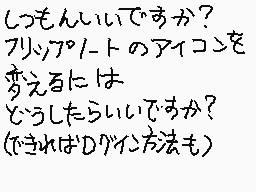 しつもんいいですか?
フリップノートのアイコンを
変えるには
どうしたらいいですか?
(できればログイン方法も)